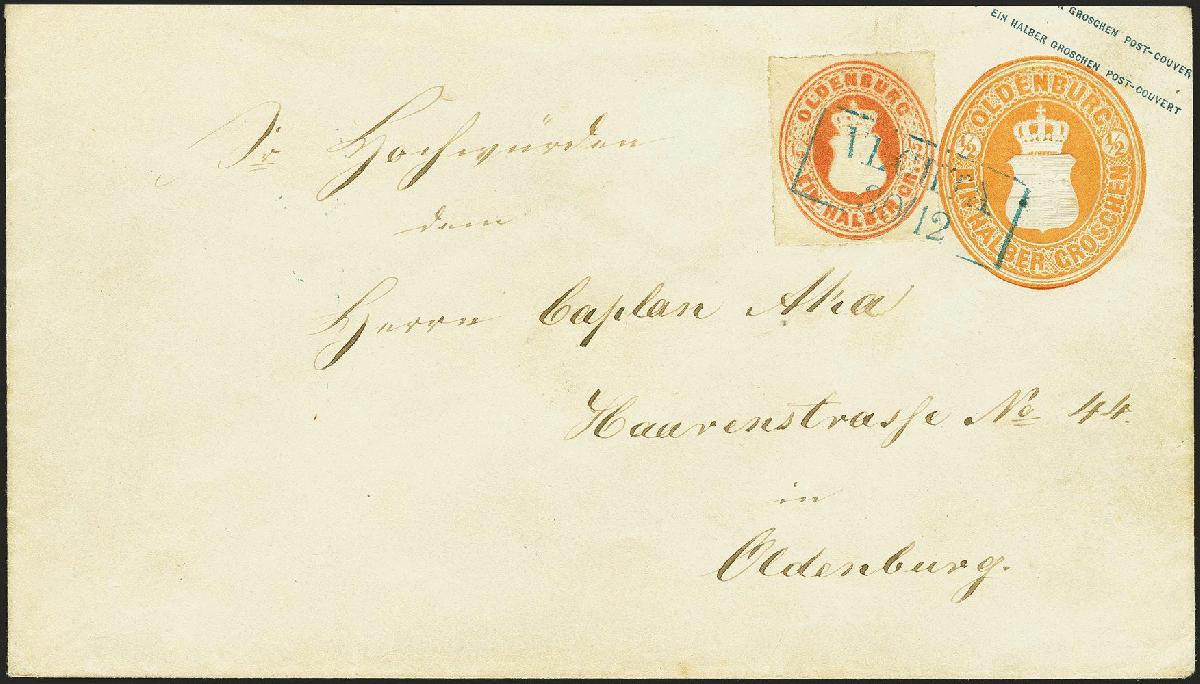 GROSCHEN POST-COUVER
EIN HALBER GROSCHEN POST-COUVERT
OLDENBURG
EIN HALBER GR.
½ OLDENBURG ½
EIN HALBER GROSCHEN
12
Sr Hochwürden
dem
Herrn Caplan Aka
Haarenstrasse No 44.
in
Oldenburg.